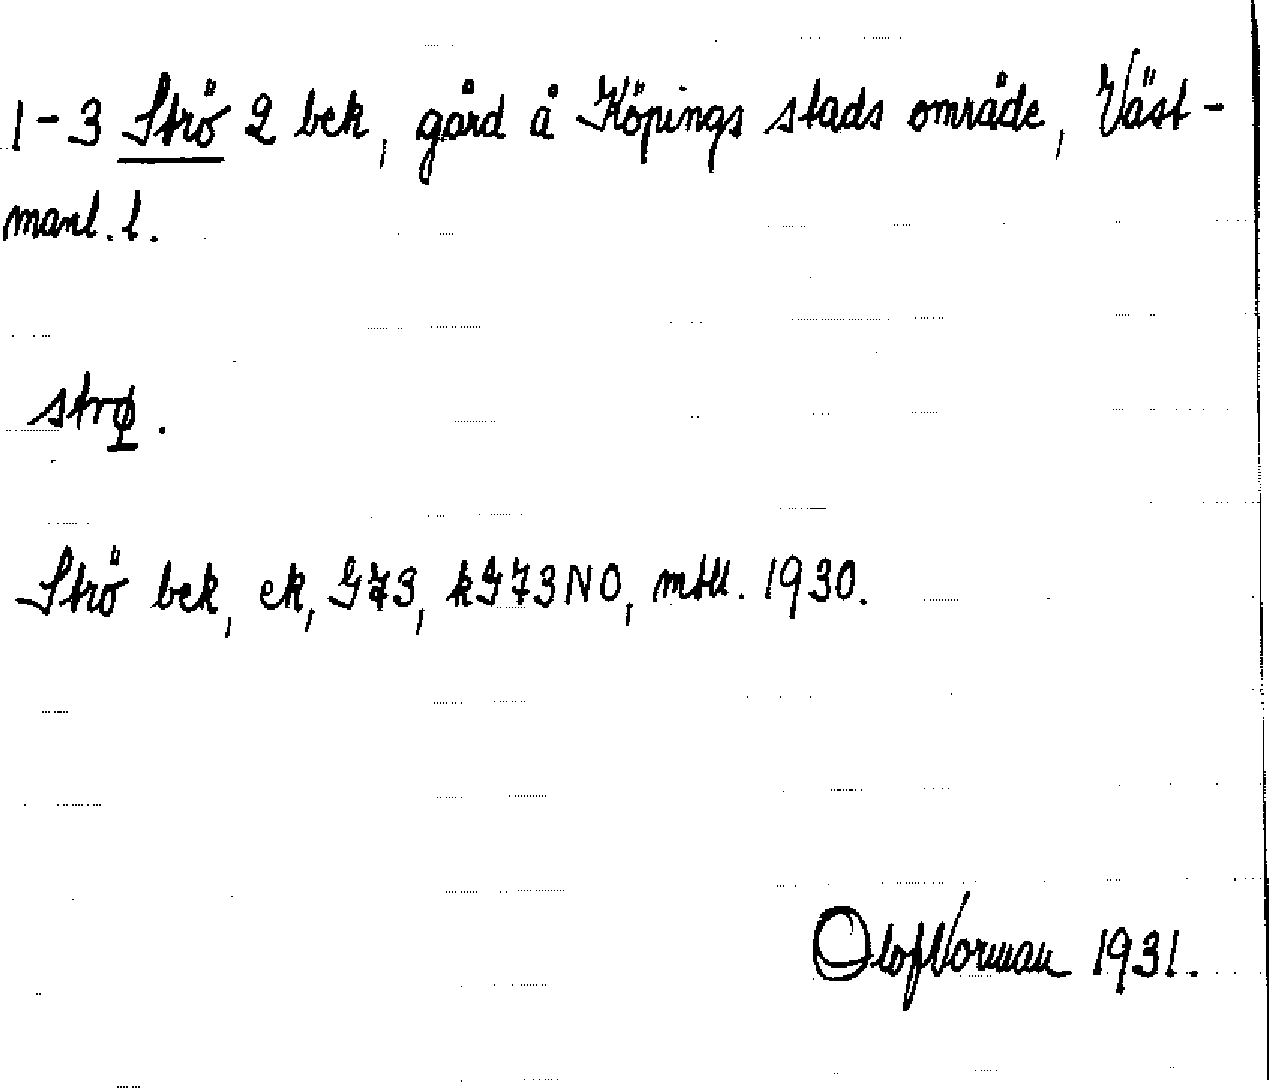 1-3 Strö 2 bek, gård å Köpings stads område, Väst-
manl. l.
strφ.
Strö bek, ek, G73, kG73NO, mtll. 1930.
Olof Norman 1931.